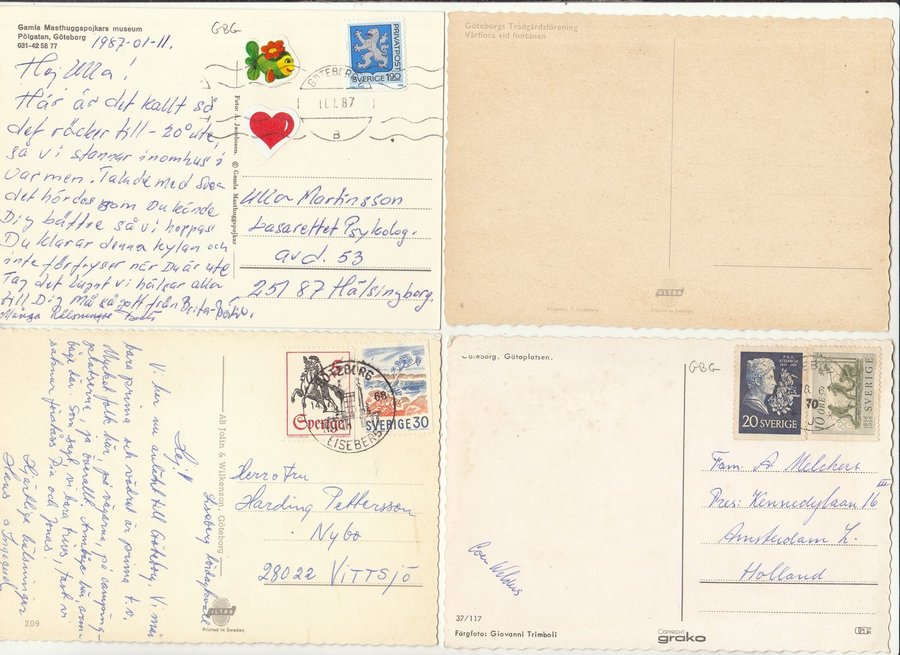 Gamla Masthuggspojkars museum
Pölgatan, Göteborg
031-42 58 77
1987-01-11.
GBG
Hej Ulla!
Här är det kallt så
det räcker till -20° ute,
så vi stannar inomhus i
varmen. Talade med Svea
det hördes som Du kände
Dig bättre så vi hoppas
Du klarar denna kylan och
inte förfryser när Du är ute
Tag det lugnt vi hälsar alla
till Dig Må så gott från
Många Hälsningar
Foto: A. Jacobsson. © Gamla Masthuggspojkar
PRIVATPOST
SVERIGE 190
GÖTEBORG
11.1.87
B
Ulla Martinsson
Lasarettet Psykolog.
avd. 53
251 87 Hälsingborg.
Göteborgs Trädgårdsförening
Vårflora vid fontänen
4
ULTRA
Printed in Sweden
Hej!
Liseberg
Vi bor nu
till Göteborg. Vi mår
bara prima och vädret är prima t.v.
Mycket folk här, på vägarna, på camping-
platserna, ja överallt.
Som sagt vi bara trivs,
saknar förstås Dia och Jonas.
Hjärtliga hälsningar
Ingegerd
AB Jolin & Wilkenson, Göteborg
ULTRA
Printed in Sweden
209
Sverige
SVERIGE 30
GÖTEBORG
68
LISEBERG
Herr o Fru
Harding Pettersson
Nybo
28022 Vittsjö
Göteborg. Götaplatsen.
GBG
20 SVERIGE
10 ÖRE
SVERIGE
70
Fam. A Melchert
Pres. Kennedylaan 16 III
Amsterdam Z.
Holland
37/117
Färgfoto: Giovanni Trimboli
COPYRIGHT
grako